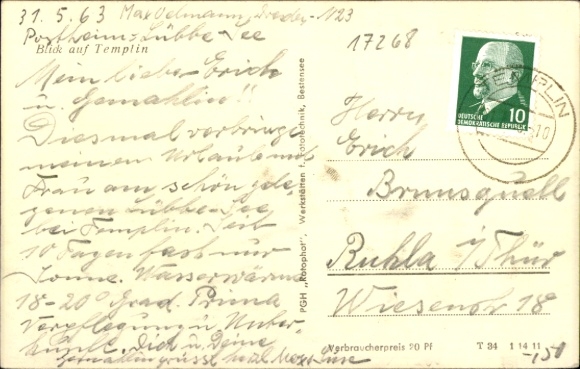 31.5.63 Max Oelmann, Dresden-N23
Postheim: Lübbe-See
Blick auf Templin
Mein lieber Erich
u. Gemahlin!!
Diesmal verbringe
meinen Urlaub mit
Frau am schön gele-
genen Lübbe-See
bei Templin. Seit
10 Tagen fast nur
Sonne. Wasserwärme
18-20° Grad. Prima
Verpflegung u. Unter-
kunft. Dich u. Deine
Gemahlin grüsst herzl. Max
PGH "Rotophot" Werkstätten f. Fototechnik, Bestensee
17268
DEUTSCHE
DEMOKRATISCHE REPUBLIK
10
TEMPLIN
Herrn
Erich
Brunsquell
Ruhla i/Thür
Wiesenstr 18
Verbraucherpreis 20 Pf
T 34 1 14 11
-,150